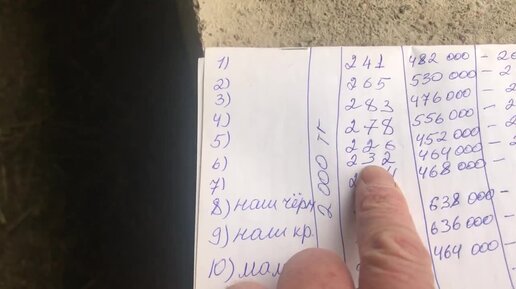 1) 241 482 000 - 2
2) 265 530 000 - 2
3) 283 476 000 - 2
4) 278 556 000 - 2
5) 226 452 000 -
6) 232 464 000 - 2
7) 468 000 -
8) наш чёрн 638 000 -
9) наш кр 636 000 -
10) мам 464 000 -
2 000 тг